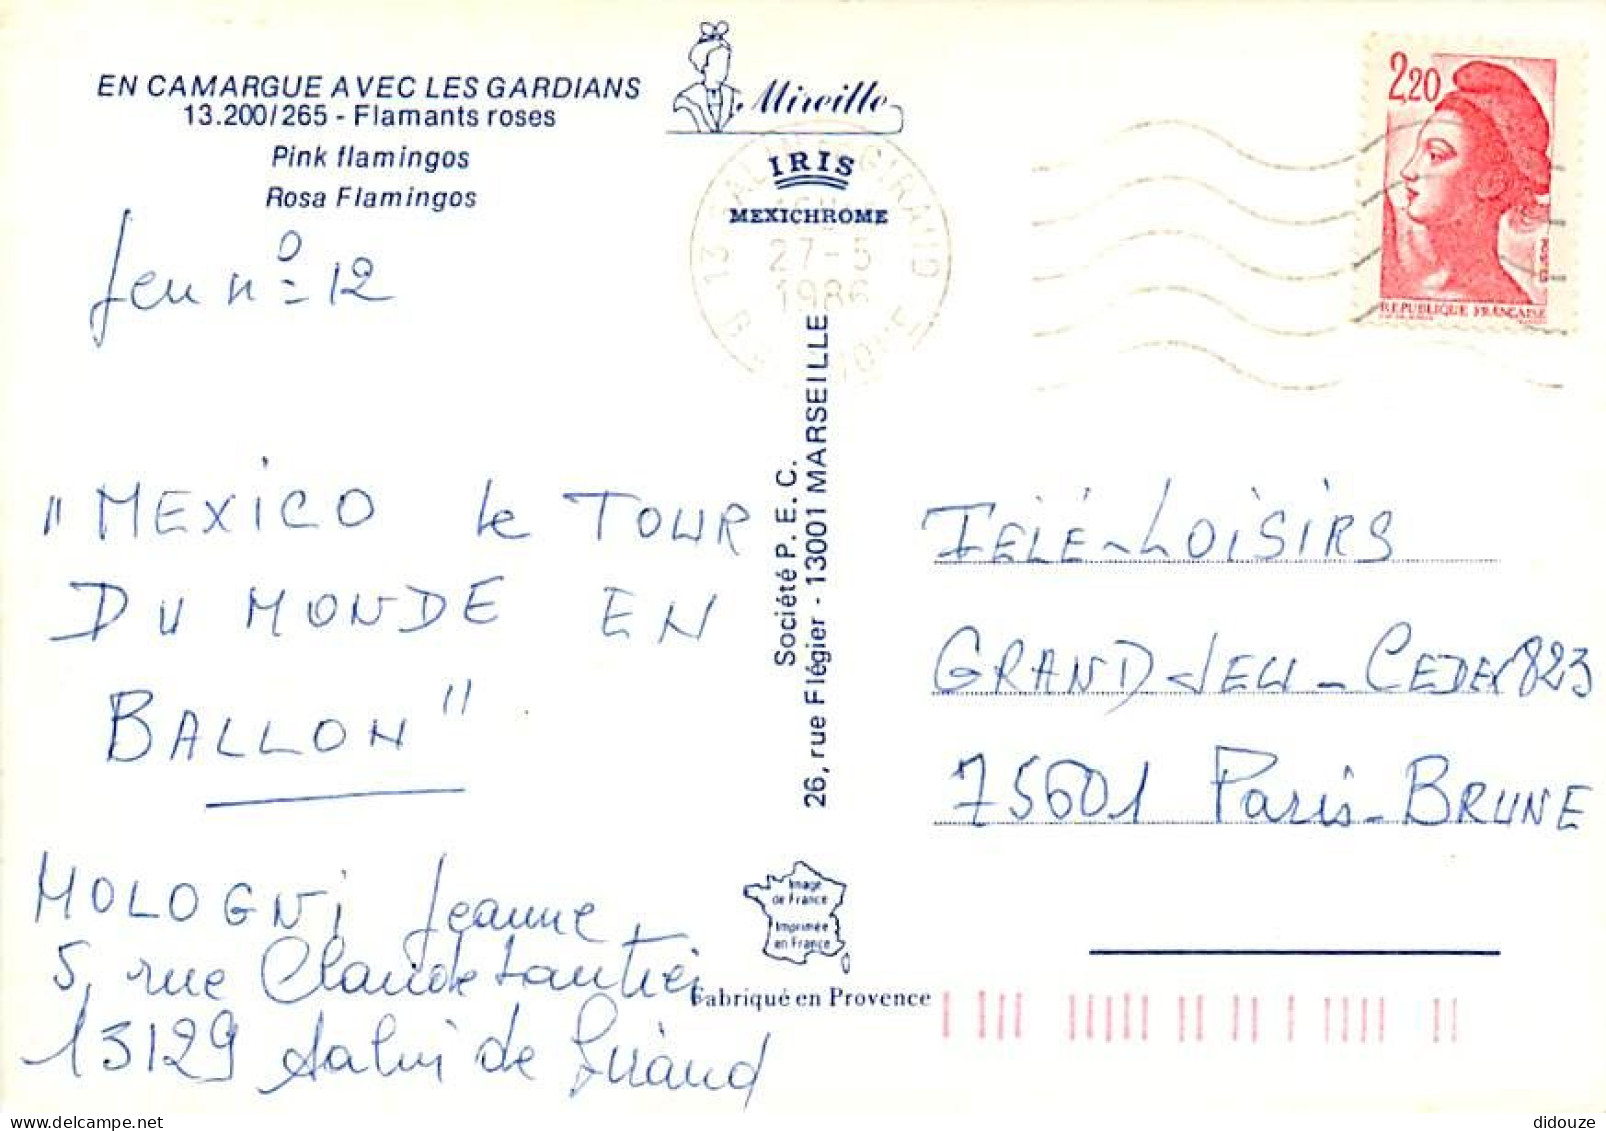 EN CAMARGUE AVEC LES GARDIANS
13.200/265 - Flamants roses
Pink flamingos
Rosa Flamingos
Mireille
IRIS
MEXICHROME
27-5
1986
2,20
REPUBLIQUE FRANÇAISE
Jeu nº 12
"MEXICO le TOUR
DU MONDE EN
BALLON"
MOLOGNi Jeanne
5, rue Claude
13129 Salin de Giraud
Société P.E.C.
26, rue Flégier - 13001 MARSEILLE
Image
de France
Imprimée
en France
Fabriqué en Provence
TÉLÉ-LOISIRS
GRAND-JEU-CEDEX 823
75601 Paris-BRUNE
didouze